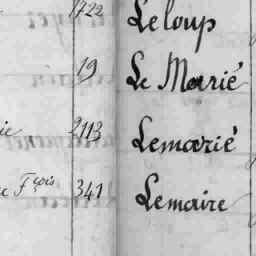 1722 Leloup
19 Le Marié
2113 Lemarié
Fçois 341 Lemaire